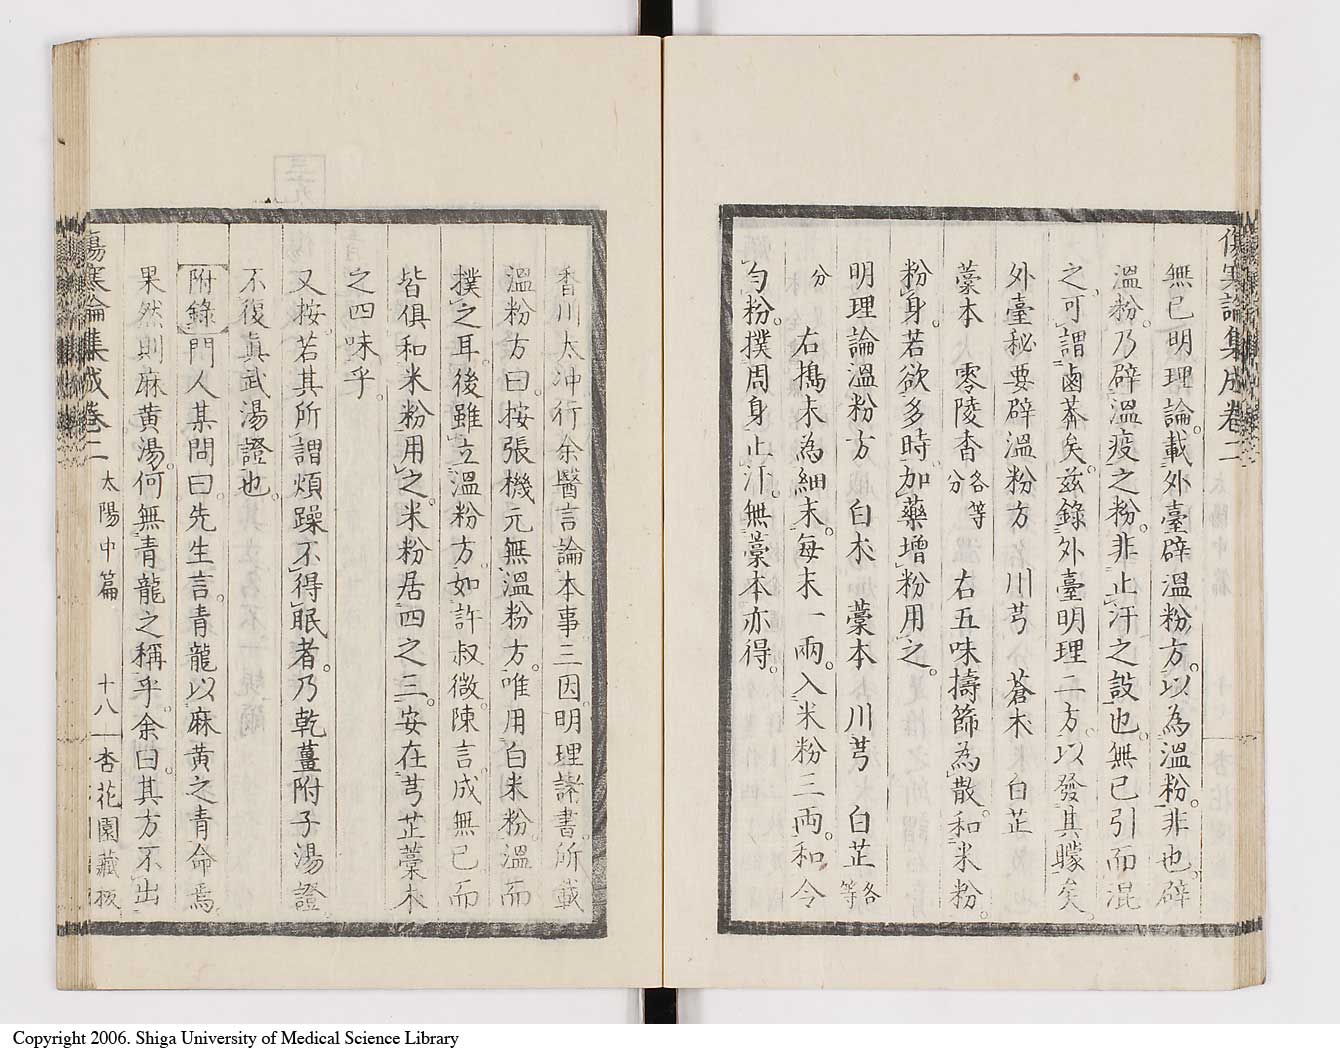 傷寒論集成卷二
無已明理論。載外臺辟溫粉方。以為溫粉。非也。辟
溫粉。乃辟溫疫之粉。非止汗之設也。無已引而混
之。可謂鹵莽矣。茲錄外臺明理二方。以發其矇矣。
外臺秘要辟溫粉方 川芎 蒼朮 白芷
藁本 零陵香各等分 右五味擣篩為散。和米粉。
粉身。若欲多時。加藥增粉用之。
明理論溫粉方 白朮 藁本 川芎 白芷各等
分 右擣末為細末。每末一兩。入米粉三両。和令
勻粉。撲周身止汗。無藁本亦得。
香川太冲行余醫言論本事三因明理諸書。所載
溫粉方曰。按張機元無溫粉方。唯用白米粉。溫而
撲之耳。後雖立溫粉方。如許叔微陳言成無已而
皆俱和米粉用之。米粉居四之三。安在芎芷藁朮
之四味乎。
又按。若其所謂煩躁不得眠者。乃乾薑附子湯證
不復眞武湯證也。
附錄門人某問曰。先生言。青龍以麻黄之青命焉
果然則麻黄湯。何無青龍之稱乎。余曰其方不出
傷寒論集成卷二 太陽中篇 十八 杏花園藏板
Copyright 2006. Shiga University of Medical Science Library